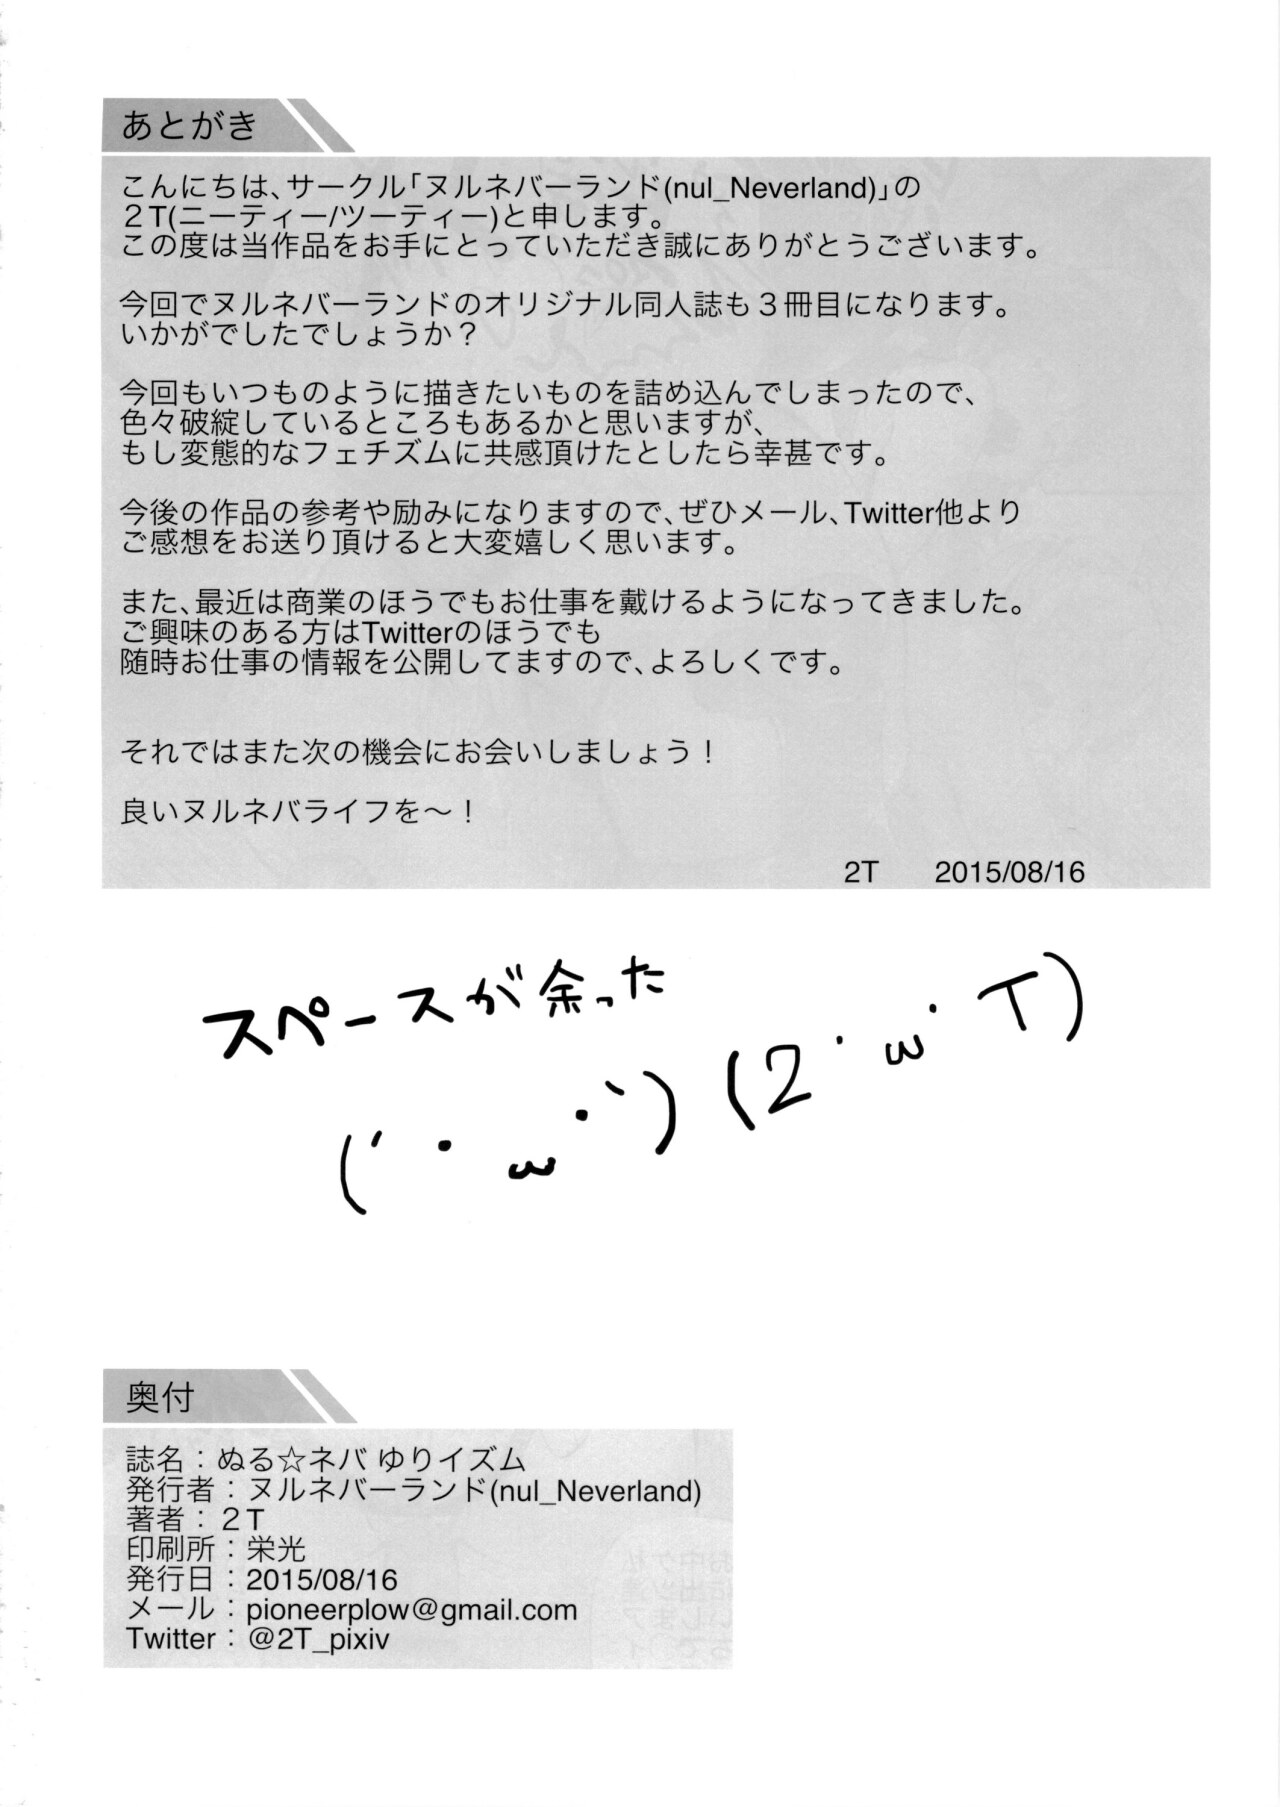 あとがき
こんにちは、サークル「ヌルネバーランド(nul_Neverland)」の
２T(ニーティー/ツーティー)と申します。
この度は当作品をお手にとっていただき誠にありがとうございます。
今回でヌルネバーランドのオリジナル同人誌も３冊目になります。
いかがでしたでしょうか？
今回もいつものように描きたいものを詰め込んでしまったので、
色々破綻しているところもあるかと思いますが、
もし変態的なフェチズムに共感頂けたとしたら幸甚です。
今後の作品の参考や励みになりますので、ぜひメール、Twitter他より
ご感想をお送り頂けると大変嬉しく思います。
また、最近は商業のほうでもお仕事を戴けるようになってきました。
ご興味のある方はTwitterのほうでも
随時お仕事の情報を公開してますので、よろしくです。
それではまた次の機会にお会いしましょう！
良いヌルネバライフを～！
2T 2015/08/16
スペースが余った
(´・ω・｀) (2・ω・T)
奥付
誌名：ぬる☆ネバ ゆりイズム
発行者：ヌルネバーランド(nul_Neverland)
著者：２T
印刷所：栄光
発行日：2015/08/16
メール：pioneerplow@gmail.com
Twitter：@2T_pixiv